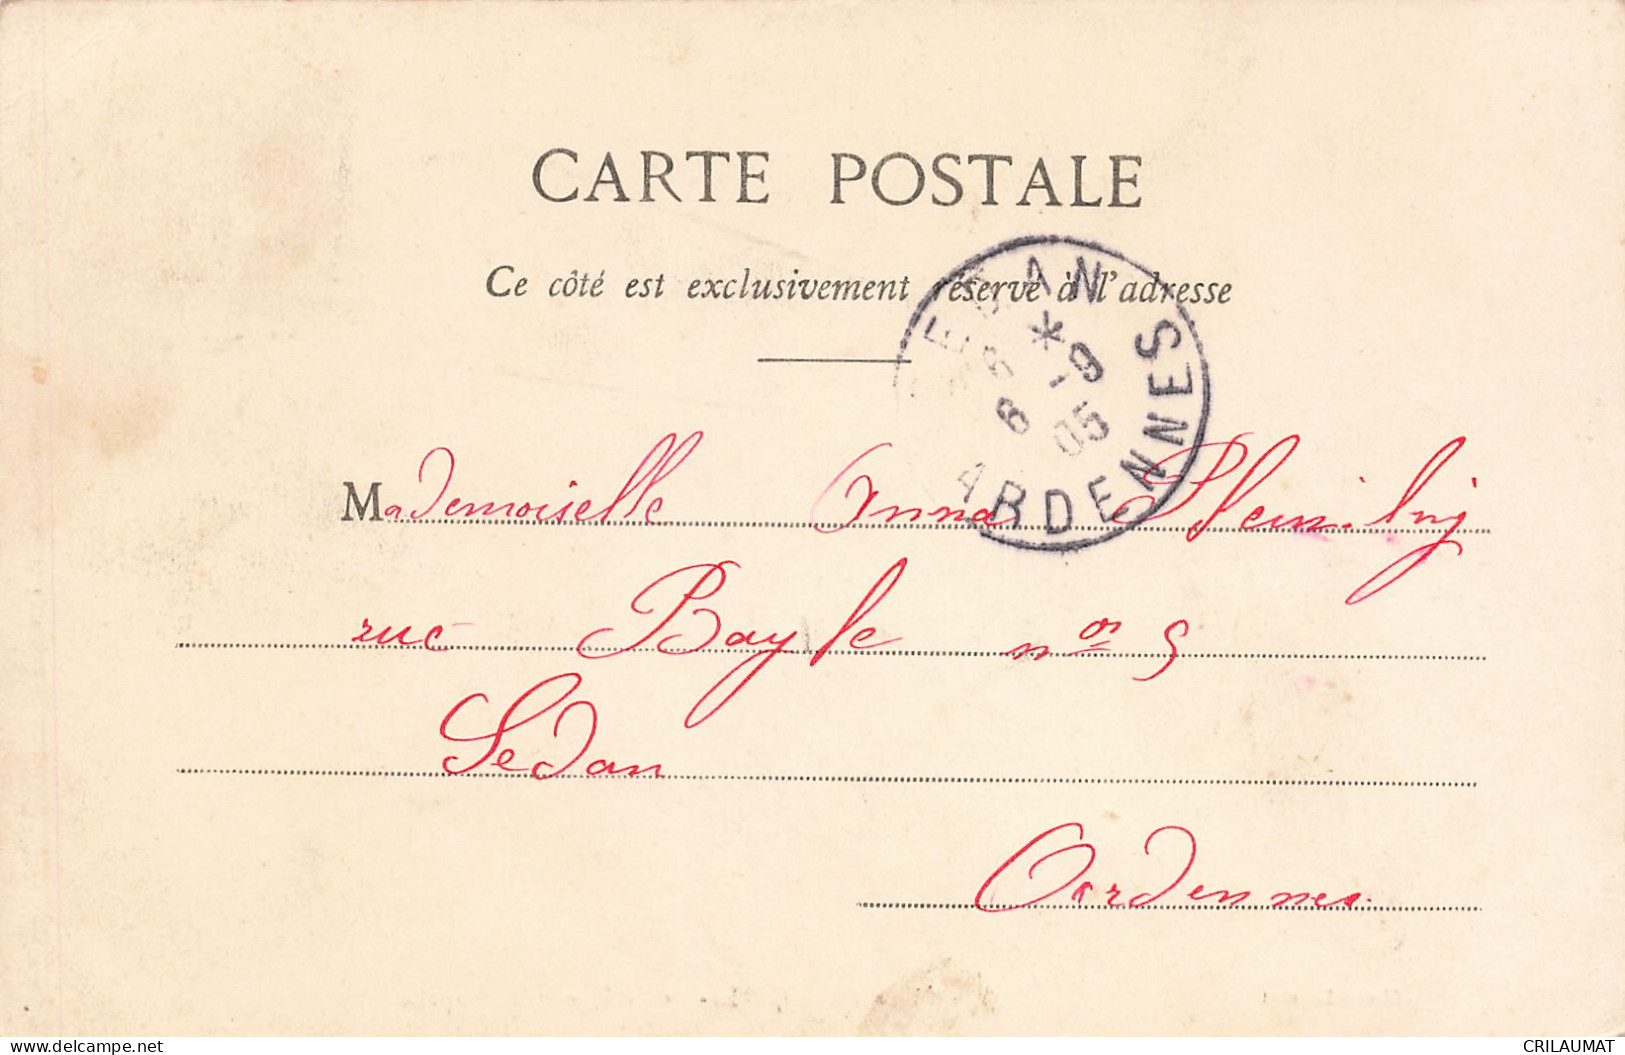 CARTE POSTALE
Ce côté est exclusivement réservé à l'adresse
SEDAN
*
8
6 -9
05
ARDENNES
Mademoiselle Anna
rue Bayle nos 5
Sedan
Ardennes
www.delcampe.net
CRILAUMAT